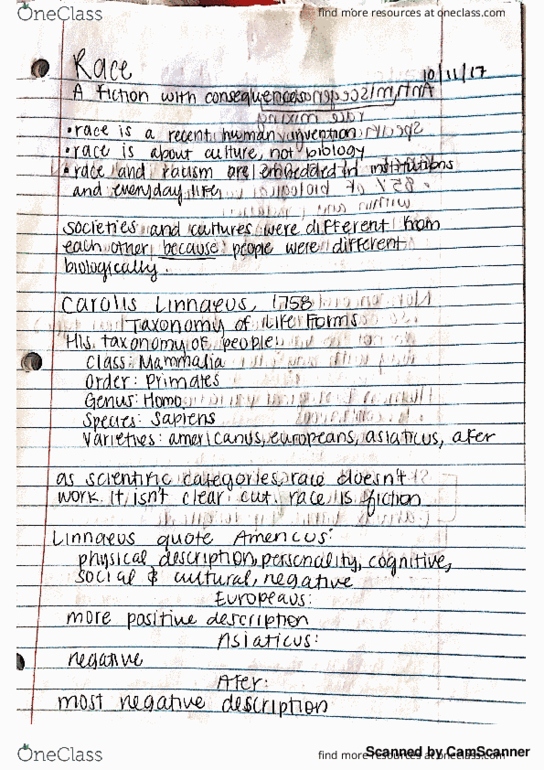 OneClass
find more resources at oneclass.com
Race
10/11/17
A fiction with consequences
•race is a recent human invention
•race is about culture, not biology
•race and racism are embedded in institutions
and everyday life
societies and cultures were different from
each other because people were different
biologically.
Carolis Linnaeus, 1758
Taxonomy of Life Forms
His taxonomy of people:
Class: Mammalia
Order: Primates
Genus: Homo
Species: Sapiens
Varieties: americanus, europeans, asiaticus, afer
as scientific categories, race doesn't
work. It isn't clear cut. race is fiction
Linnaeus quote Amencus:
physical description, personality, cognitive,
social & cultural, negative
Europeaus:
more positive description
Asiaticus:
negative
Afer:
most negative description
OneClass
find more resources at oneclass.com
Scanned by CamScanner